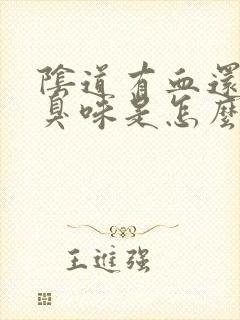 陰道有血還
臭味是怎麼
王進强